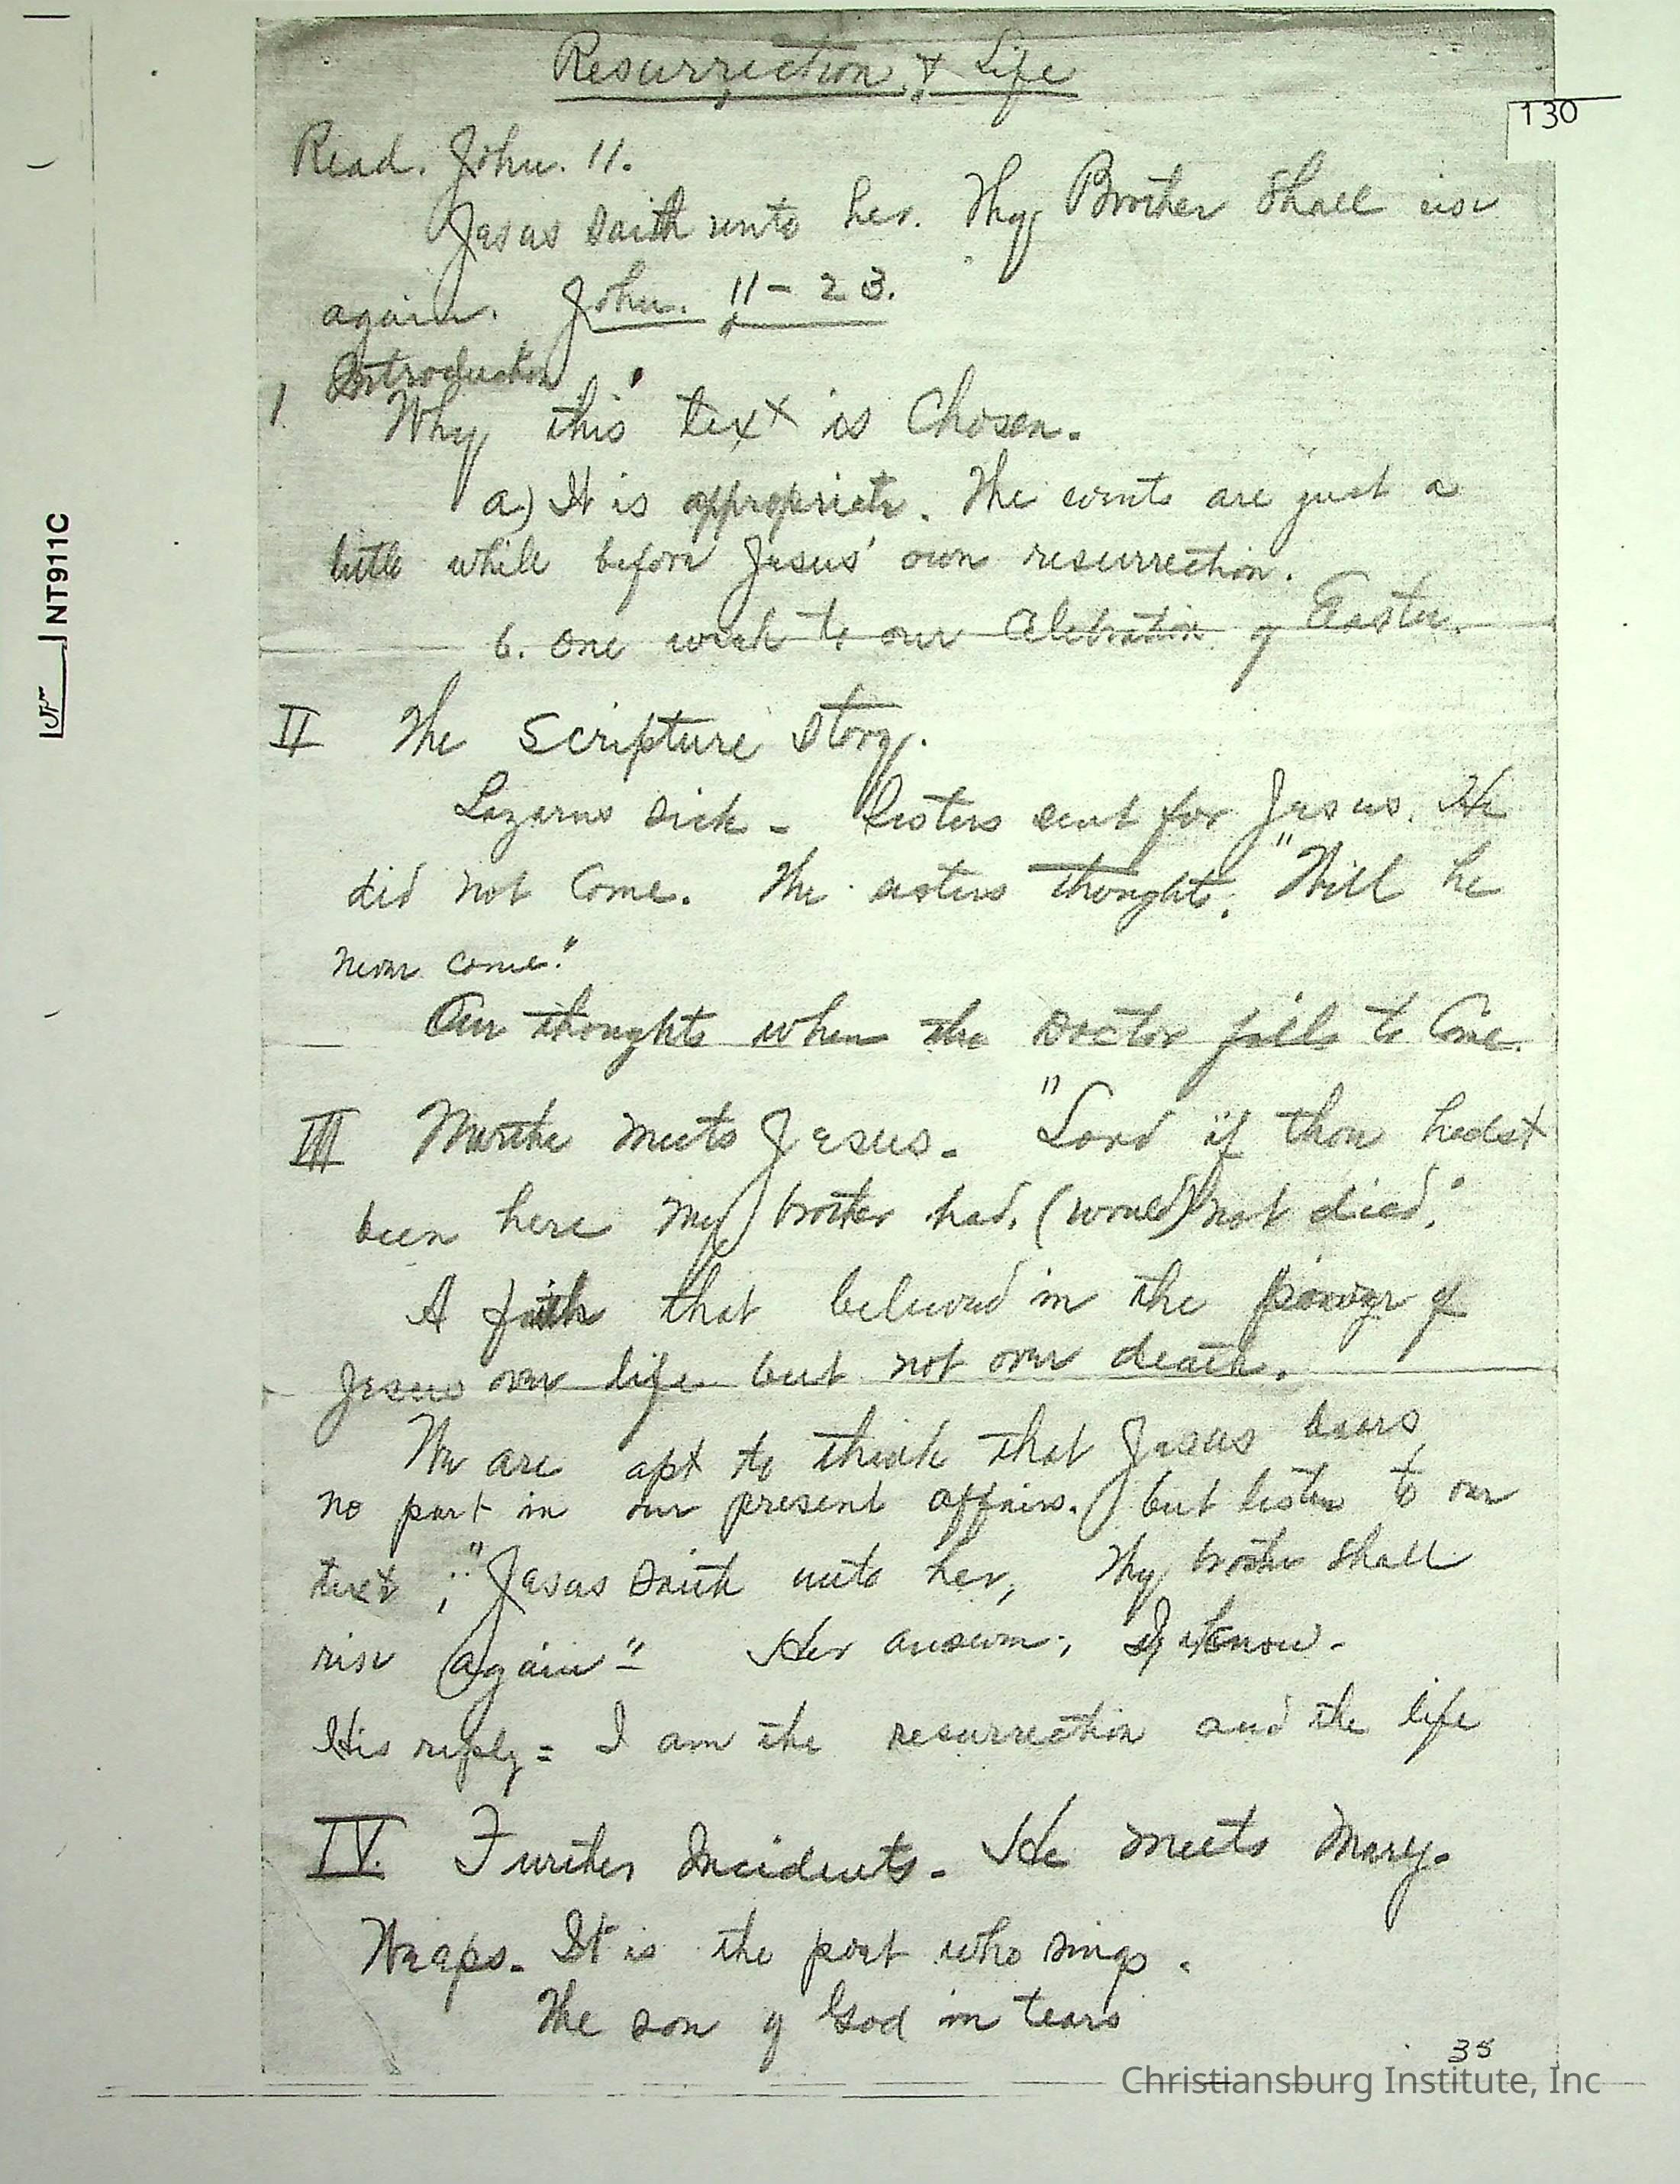 Resurrection & Life
130
Read. John. 11.
Jesus saith unto her. Thy Brother shall rise
again. John. 11-23.
Introduction
1. Why this text is Chosen.
a) It is appropriate. The events are just a
little while before Jesus' own resurrection.
b. One week to our Celebration of Easter.
II The Scripture Story.
Lazarus sick - Sisters sent for Jesus. He
did not Come. The sisters thought. "Will he
never come."
Our thoughts when the Doctor fails to Come.
III Martha meets Jesus - "Lord if thou hadst
been here my brother had. (would) not died."
A faith that believed in the power of
Jesus over life but not over death.
We are apt to think that Jesus bears
no part in our present affairs. but listen to our
text; "Jesus saith unto her, Thy brother shall
rise again" - Her answer; I know -
His reply = I am the resurrection and the life
IV. Further Incidents - He meets Mary.
Weeps - It is the poet who sings.
The son of God in tears
35
NT911C
Christiansburg Institute, Inc